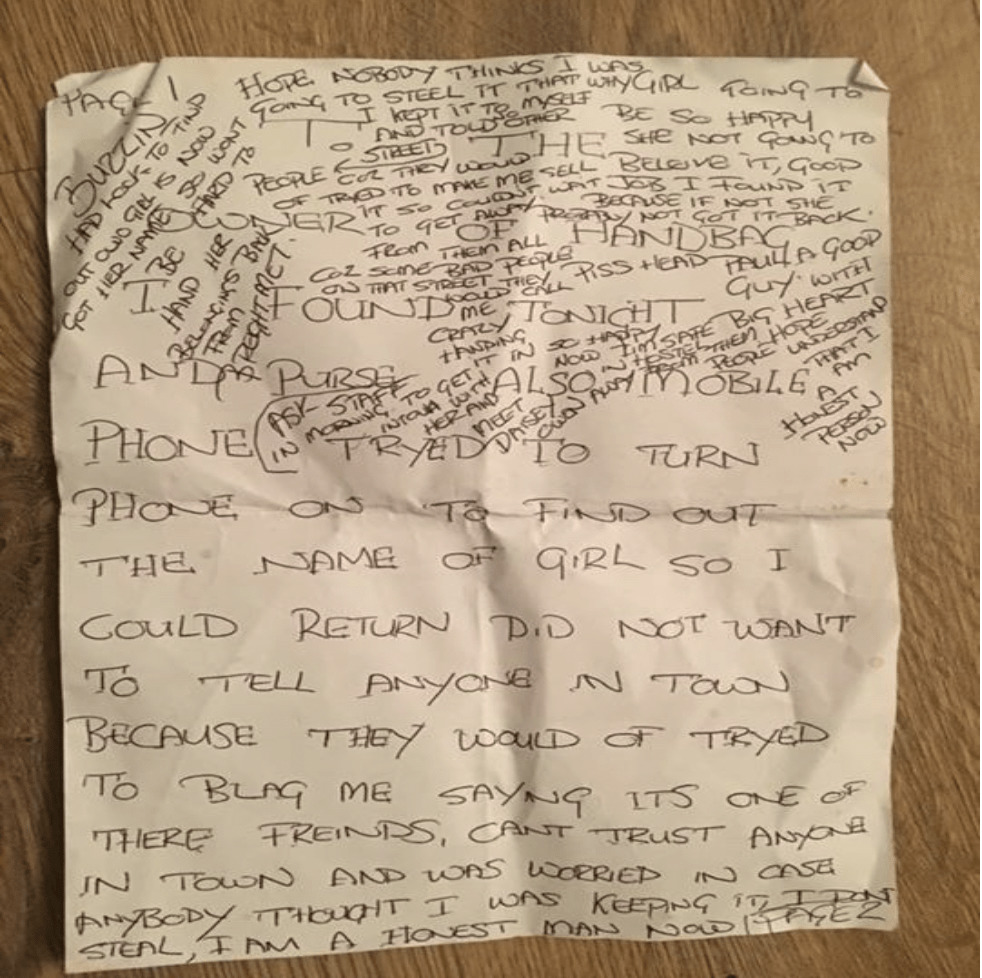 PAGE 1
TO THE
OWNER OF HANDBAG
I FOUND TONIGHT
AND PURSE ALSO MOBILE
PHONE TRYED TO TURN
PHONE ON TO FIND OUT
THE NAME OF GIRL SO I
COULD RETURN DID NOT WANT
TO TELL ANYONE IN TOWN
BECAUSE THEY WOULD OF TRYED
TO BLAG ME SAYNG ITS ONE OF
THERE FREINDS, CANT TRUST ANYONE
IN TOWN AND WAS WORRIED IN CASE
ANYBODY THOUGHT I WAS KEEPING IT, I DONT
STEAL, I AM A HONEST MAN NOW PAGE 2
HOPE NOBODY THINKS I WAS
GOING TO STEEL IT THAT WHY
I KEPT IT TO MYSELF
AND TOLD OTHER
STREET
PEOPLE COZ THEY WOULD
OF TRYED TO MAKE ME SELL
IT SO COULDNT WAT
TO GET AWAY
FROM THEM ALL
COZ SOME BAD PEOPLE
ON THAT STREET THEY
WOULD CALL
ME
CRAZY
HANDING
IT IN SO HAPPY
NOW I'M SAFE
IN HESTEL
OWN AWAY FROM
GIRL GOING TO
BE SO HAPPY
SHE NOT GOING TO
BELEIVE IT, GOOD
JOB I FOUND IT
BECAUSE IF NOT SHE
NOT GOT IT BACK.
PISS HEAD PAUL A GOOD
GUY WITH
BIG HEART
THEM HOPE
PEOPLE UNDERSTAND
THAT I
AM
A
HONEST
PERSON
NOW
BUZZIN
HAD LOOK TO FIND
OUT OWD GIRL IS NOW
GOT HER NAME SO WONT
BE HARD TO
HAND HER
BELONGINGS BACK
FROM
STREIGHT MET.
ASK STAFF
IN MORNING TO GET
INTOUH WITH
HER AND
MEET
DAISEY